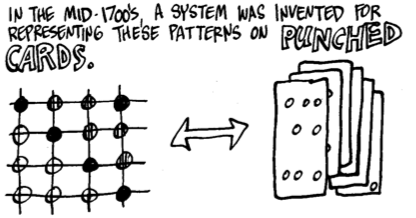 IN THE MID-1700'S, A SYSTEM WAS INVENTED FOR
REPRESENTING THESE PATTERNS ON PUNCHED
CARDS.